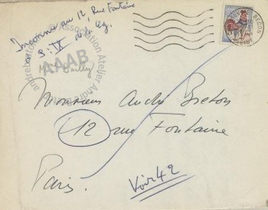 Inconnu au 12, Rue Fontaine
8.IV
AAAB
Association Atelier André
Monsieur André Breton
12 rue Fontaine
Paris.
Voir 42